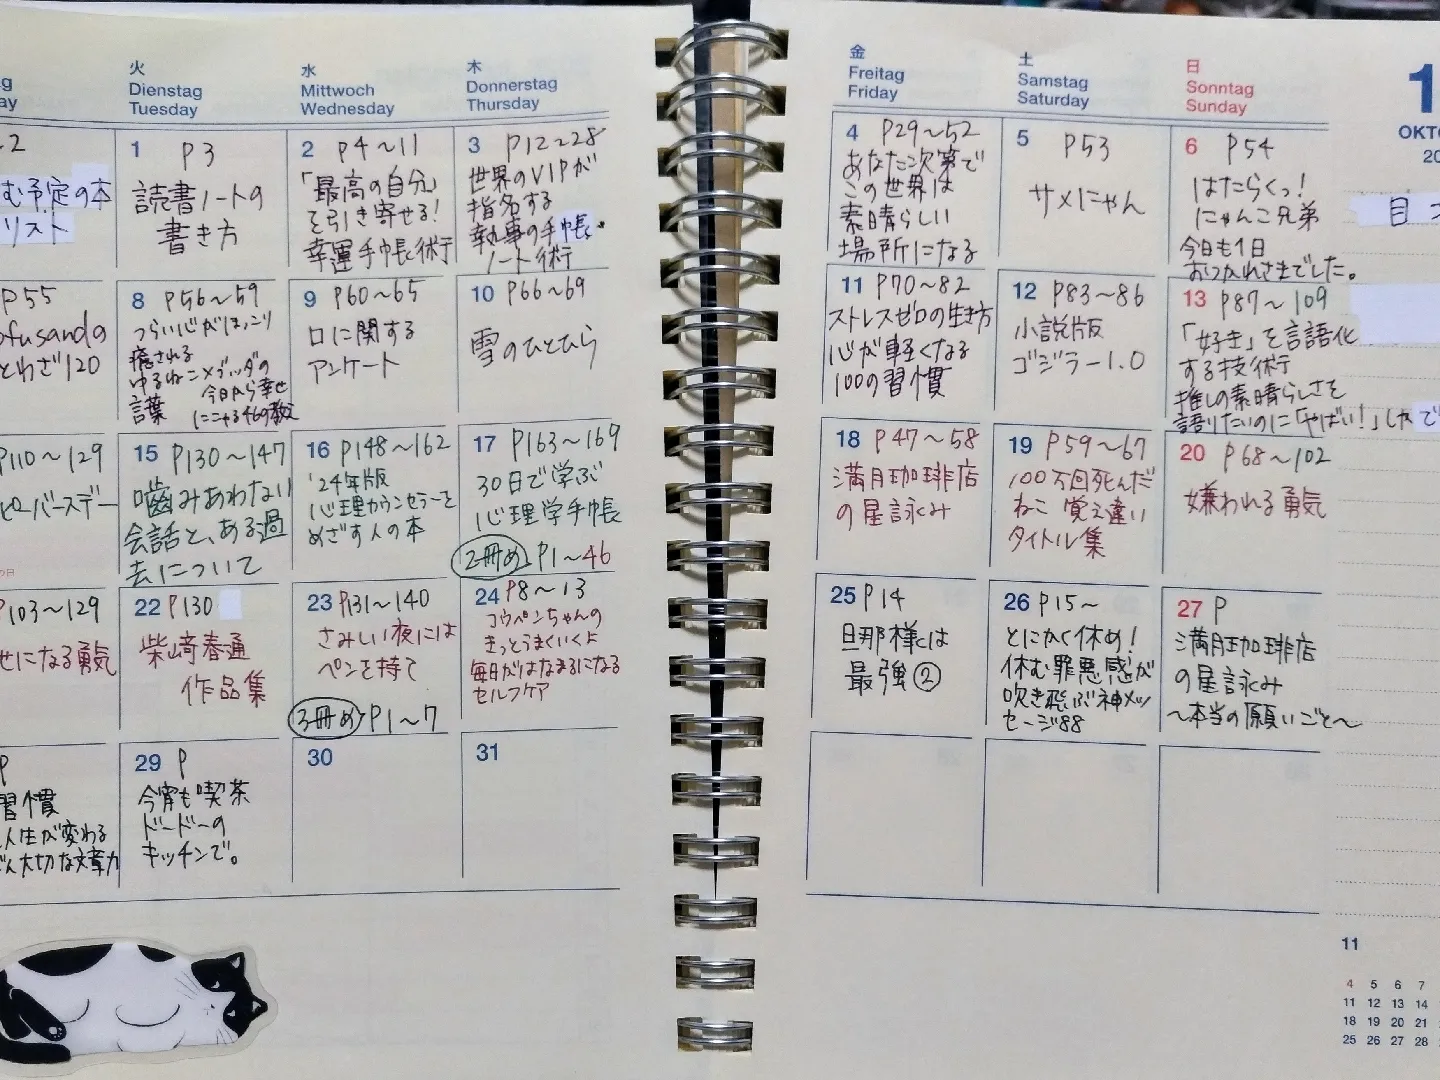 火
Dienstag
Tuesday
水
Mittwoch
Wednesday
木
Donnerstag
Thursday
金
Freitag
Friday
土
Samstag
Saturday
日
Sonntag
Sunday
1
OKTO
20
む予定の本
リスト
1 P3
読書ノートの
書き方
2 P4〜11
「最高の自分」
を引き寄せる!
幸運手帳術
3 P12〜28
世界のVIPが
指名する
執事の手帳・
ノート術
4 P29〜52
あなた次第で
この世界は
素晴らしい
場所になる
5 P53
サメにゃん
6 P54
はたらくっ!
にゃんこ兄弟
今日も1日
おつかれさまでした。
目
P55
ofusanda
とわざ120
8 P56〜59
つらい心がほっこり
癒される
ゆるねこ×ブッダの
言葉 今日から幸せ
になる46の教え
9 P60〜65
口に関する
アンケート
10 P66〜69
雪のひとひら
11 P70〜82
ストレスゼロの生き方
心が軽くなる
100の習慣
12 P83〜86
小説版
ゴジラー1.0
13 P87〜109
「好き」を言語化
する技術
推しの素晴らしさを
語りたいのに「やばい!」しかで
P110〜129
ピーバースデー
15 P130〜147
噛みあわない
会話と、ある過
去について
16 P148〜162
'24年版
心理カウンセラーを
めざす人の本
17 P163〜169
30日で学ぶ
心理学手帳
2冊め P1〜46
18 P47〜58
満月珈琲店
の星詠み
19 P59〜67
100万回死んだ
ねこ 覚え違い
タイトル集
20 P68〜102
嫌われる勇気
P103〜129
せになる勇気
22 P130
柴崎春通
作品集
23 P131〜140
さみしい夜には
ペンを持て
3冊め P1〜7
24 P8〜13
コウペンちゃんの
きっとうまくいくよ
毎日がはなまるになる
セルフケア
25 P14
旦那様は
最強②
26 P15〜
とにかく休め!
休む罪悪感が
吹き飛ぶ神メッ
セージ88
27 P
満月珈琲店
の星詠み
〜本当の願いごと〜
P
習慣
人生が変わる
大切な文章力
29 P
今宵も喫茶
ドードーの
キッチンで。
30
31
11
4 5 6 7
11 12 13 14
18 19 20 21
25 26 27 28